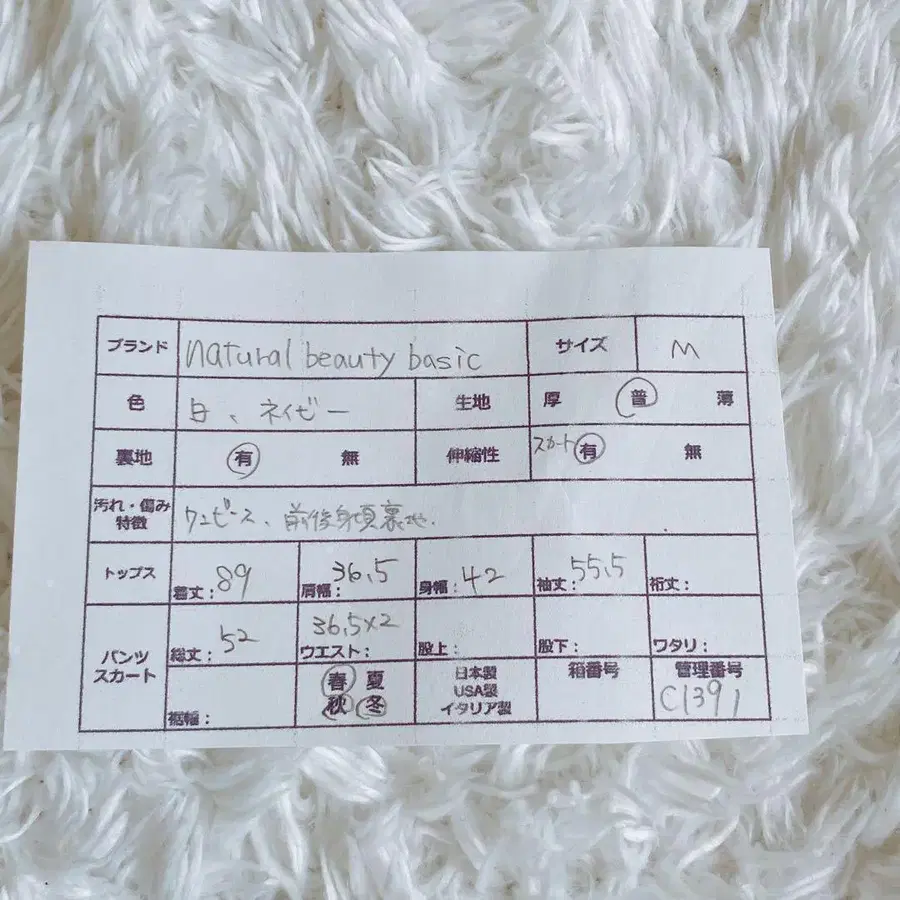 ブランド natural beauty basic サイズ M
色 白、ネイビー 生地 厚 普 薄
裏地 有 無 伸縮性 スカート 有 無
汚れ・傷み
特徴 ワンピース、前後身頃裏地.
トップス 着丈:89 肩幅:36.5 身幅:42 袖丈:55.5 裄丈:
パンツ
スカート 総丈:52 ウエスト:36.5×2 股上: 股下: ワタリ:
裾幅: 春 夏
秋 冬
日本製
USA製
イタリア製
箱番号
管理番号
C1391